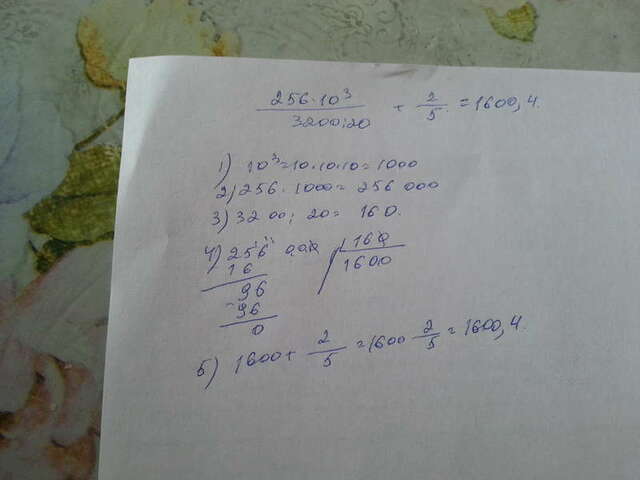 256·10³ / 3200:20 + 2/5 = 1600,4.
1) 10³=10·10·10=1000
2) 256·1000= 256 000
3) 3200:20= 160.
4) 256 000 | 160
16 1600
96
-96
0
5) 1600+ 2/5 =1600 2/5 = 1600,4.